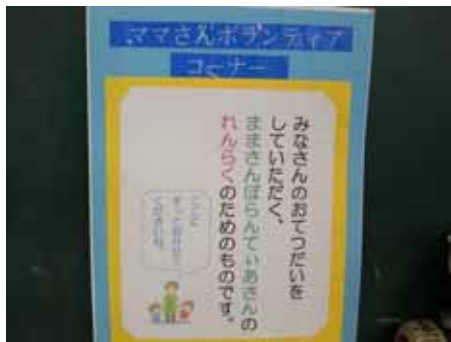 ママさんボランティア
コーナー
みなさんのおてつだいを
していただく、
ままさんぼらんてぃあさんの
れんらくのためのものです。